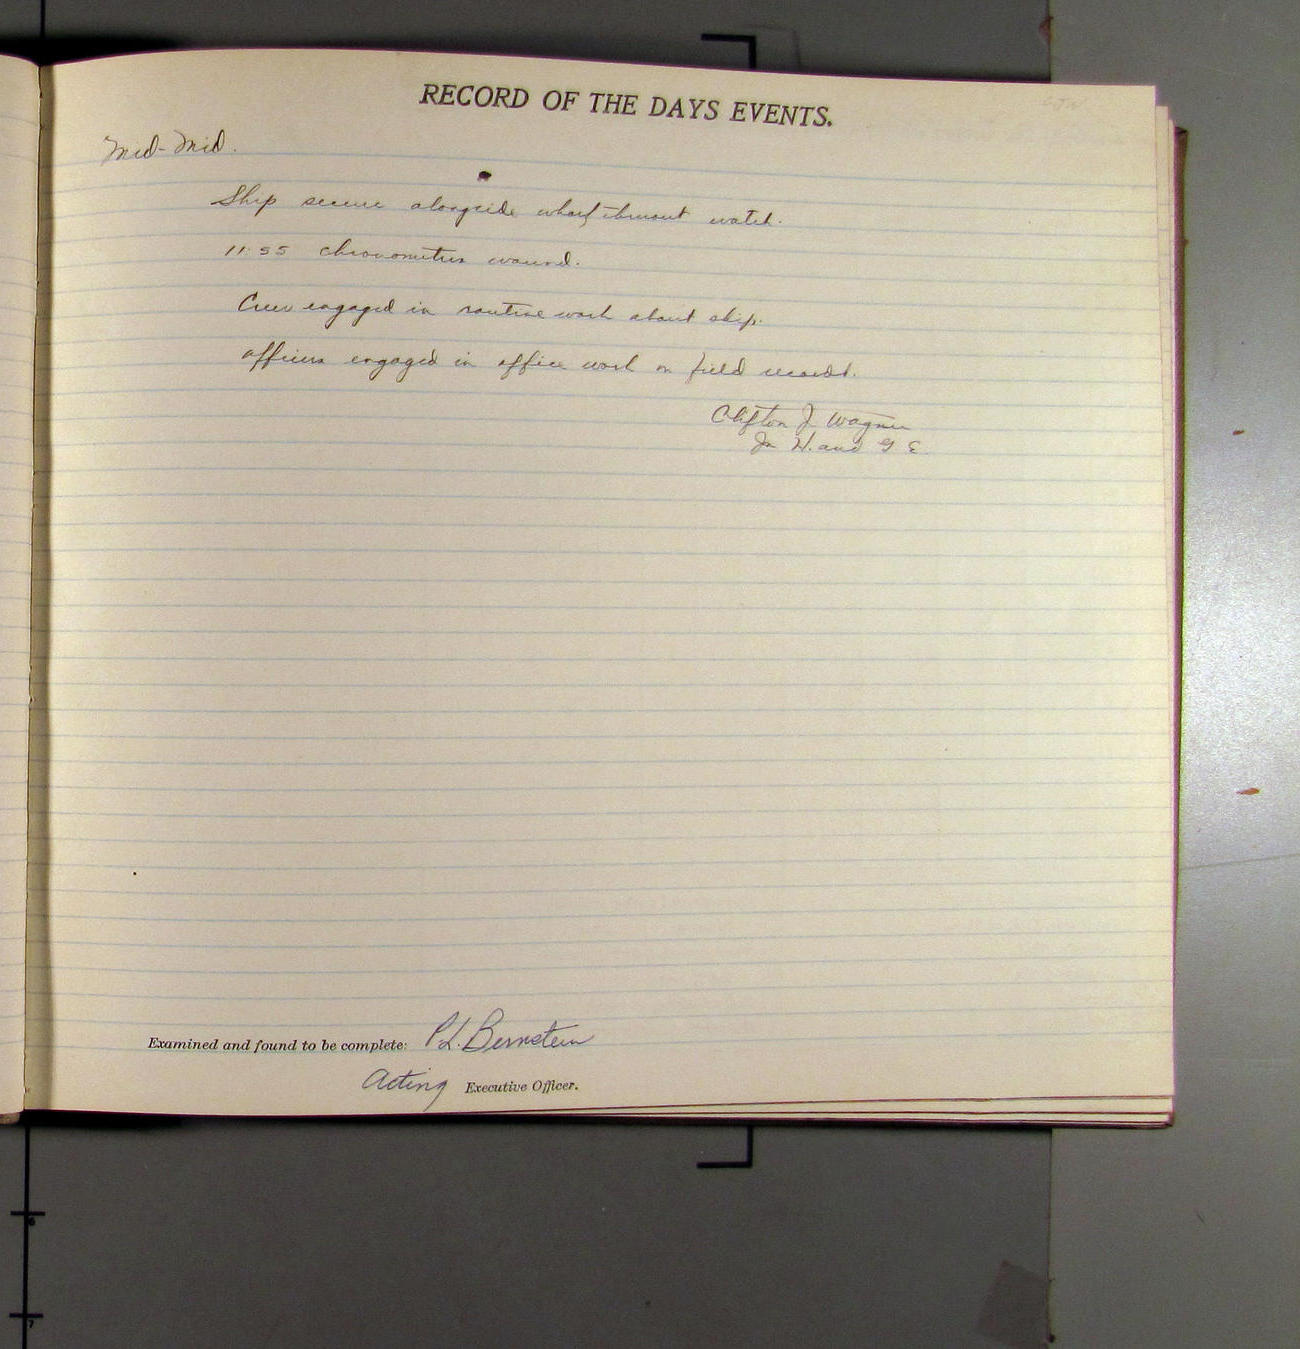 RECORD OF THE DAYS EVENTS.
Mid-Mid.
Ship secure alongside wharf thruout watch.
11:55 chronometers wound.
Crew engaged in routine work about ship.
Officers engaged in office work on field records.
Clifton J Wagner
Jr H. and G E.
Examined and found to be complete: P.L. Bernstein
Acting Executive Officer.
6
7